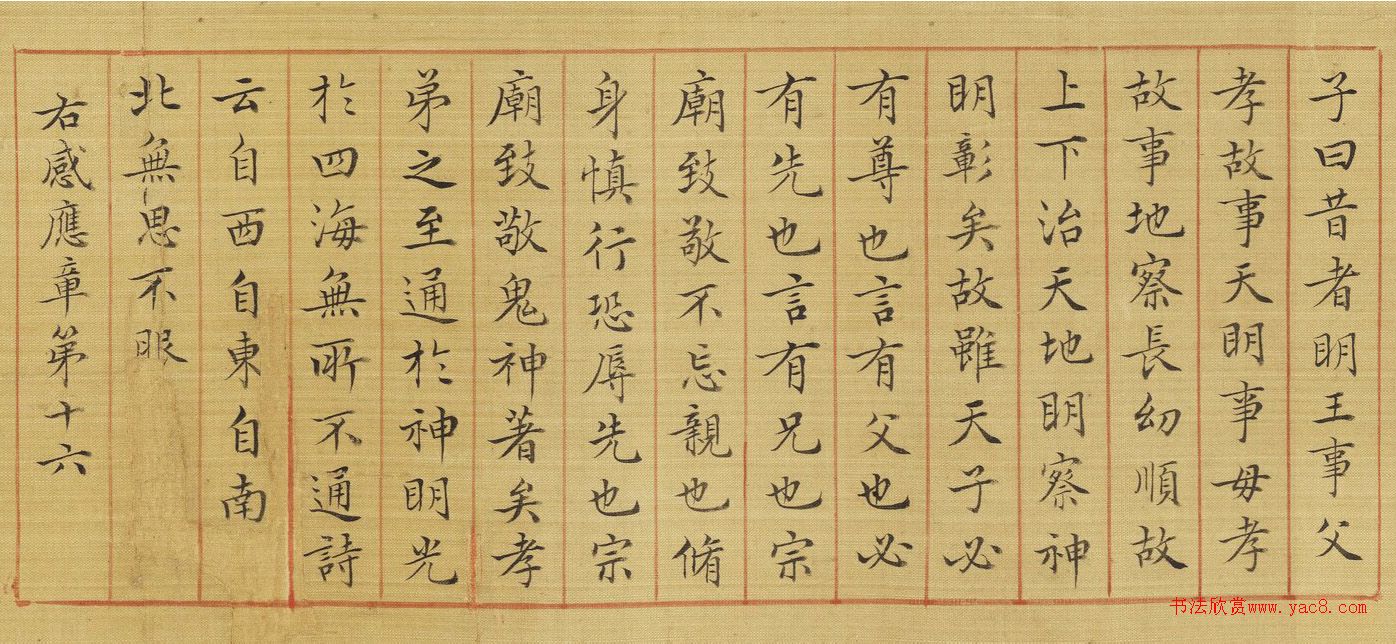 子曰昔者明王事父
孝故事天明事母孝
故事地察長幼順故
上下治天地明察神
明彰矣故雖天子必
有尊也言有父也必
有先也言有兄也宗
廟致敬不忘親也脩
身慎行恐辱先也宗
廟致敬鬼神著矣孝
弟之至通於神明光
於四海無所不通詩
云自西自東自南
北無思不服
右感應章第十六
书法欣赏www.yac8.com